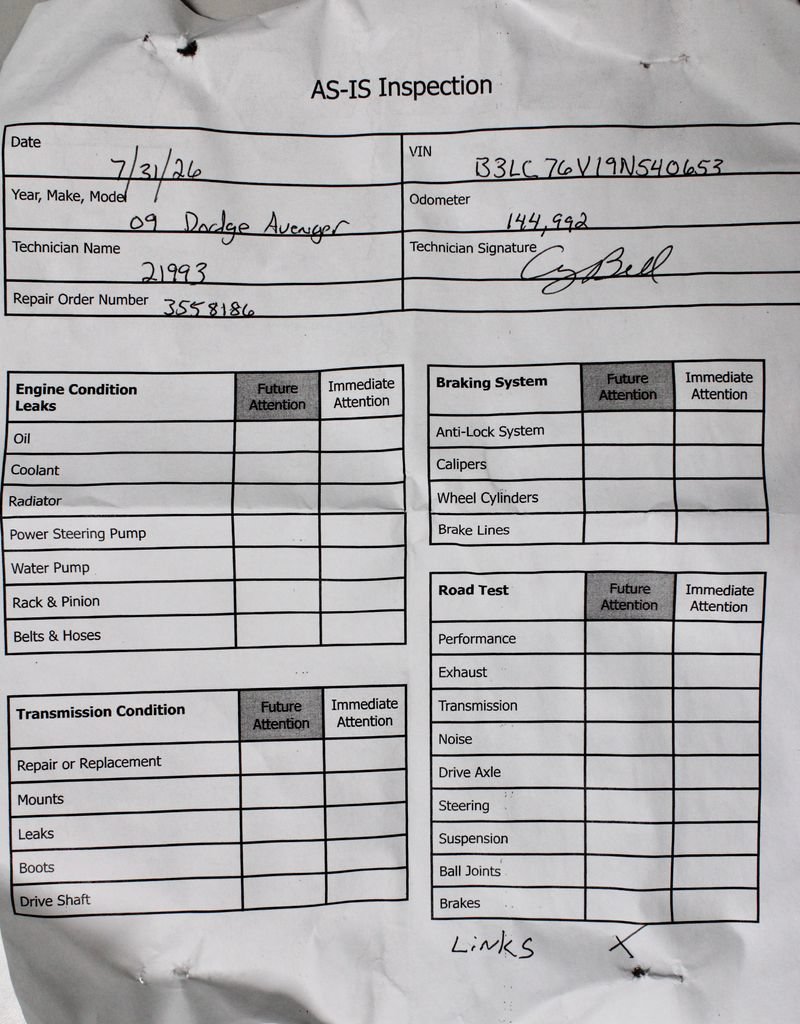 AS-IS Inspection
Date 7/31/26
VIN B3LC76V19N540653
Year, Make, Model 09 Dodge Avenger
Odometer 144,992
Technician Name 21993
Technician Signature
Repair Order Number 3558186
Engine Condition Leaks Future Attention Immediate Attention
Oil
Coolant
Radiator
Power Steering Pump
Water Pump
Rack & Pinion
Belts & Hoses
Transmission Condition Future Attention Immediate Attention
Repair or Replacement
Mounts
Leaks
Boots
Drive Shaft
Braking System Future Attention Immediate Attention
Anti-Lock System
Calipers
Wheel Cylinders
Brake Lines
Road Test Future Attention Immediate Attention
Performance
Exhaust
Transmission
Noise
Drive Axle
Steering
Suspension
Ball Joints
Brakes
Links X